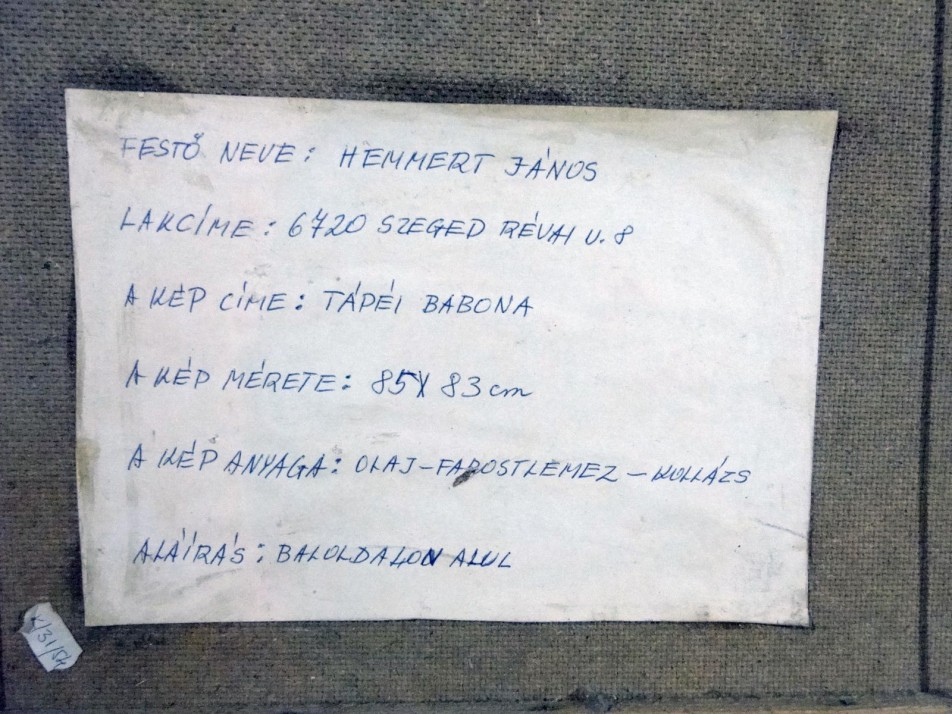 FESTŐ NEVE: HEMMERT JÁNOS
LAKCÍME: 6720 SZEGED RÉVAI U. 8
A KÉP CÍME: TÁPÉI BABONA
A KÉP MÉRETE: 85X83 cm
A KÉP ANYAGA: OLAJ-FAROSTLEMEZ-KOLLÁZS
ALÁÍRÁS: BALOLDALON ALUL